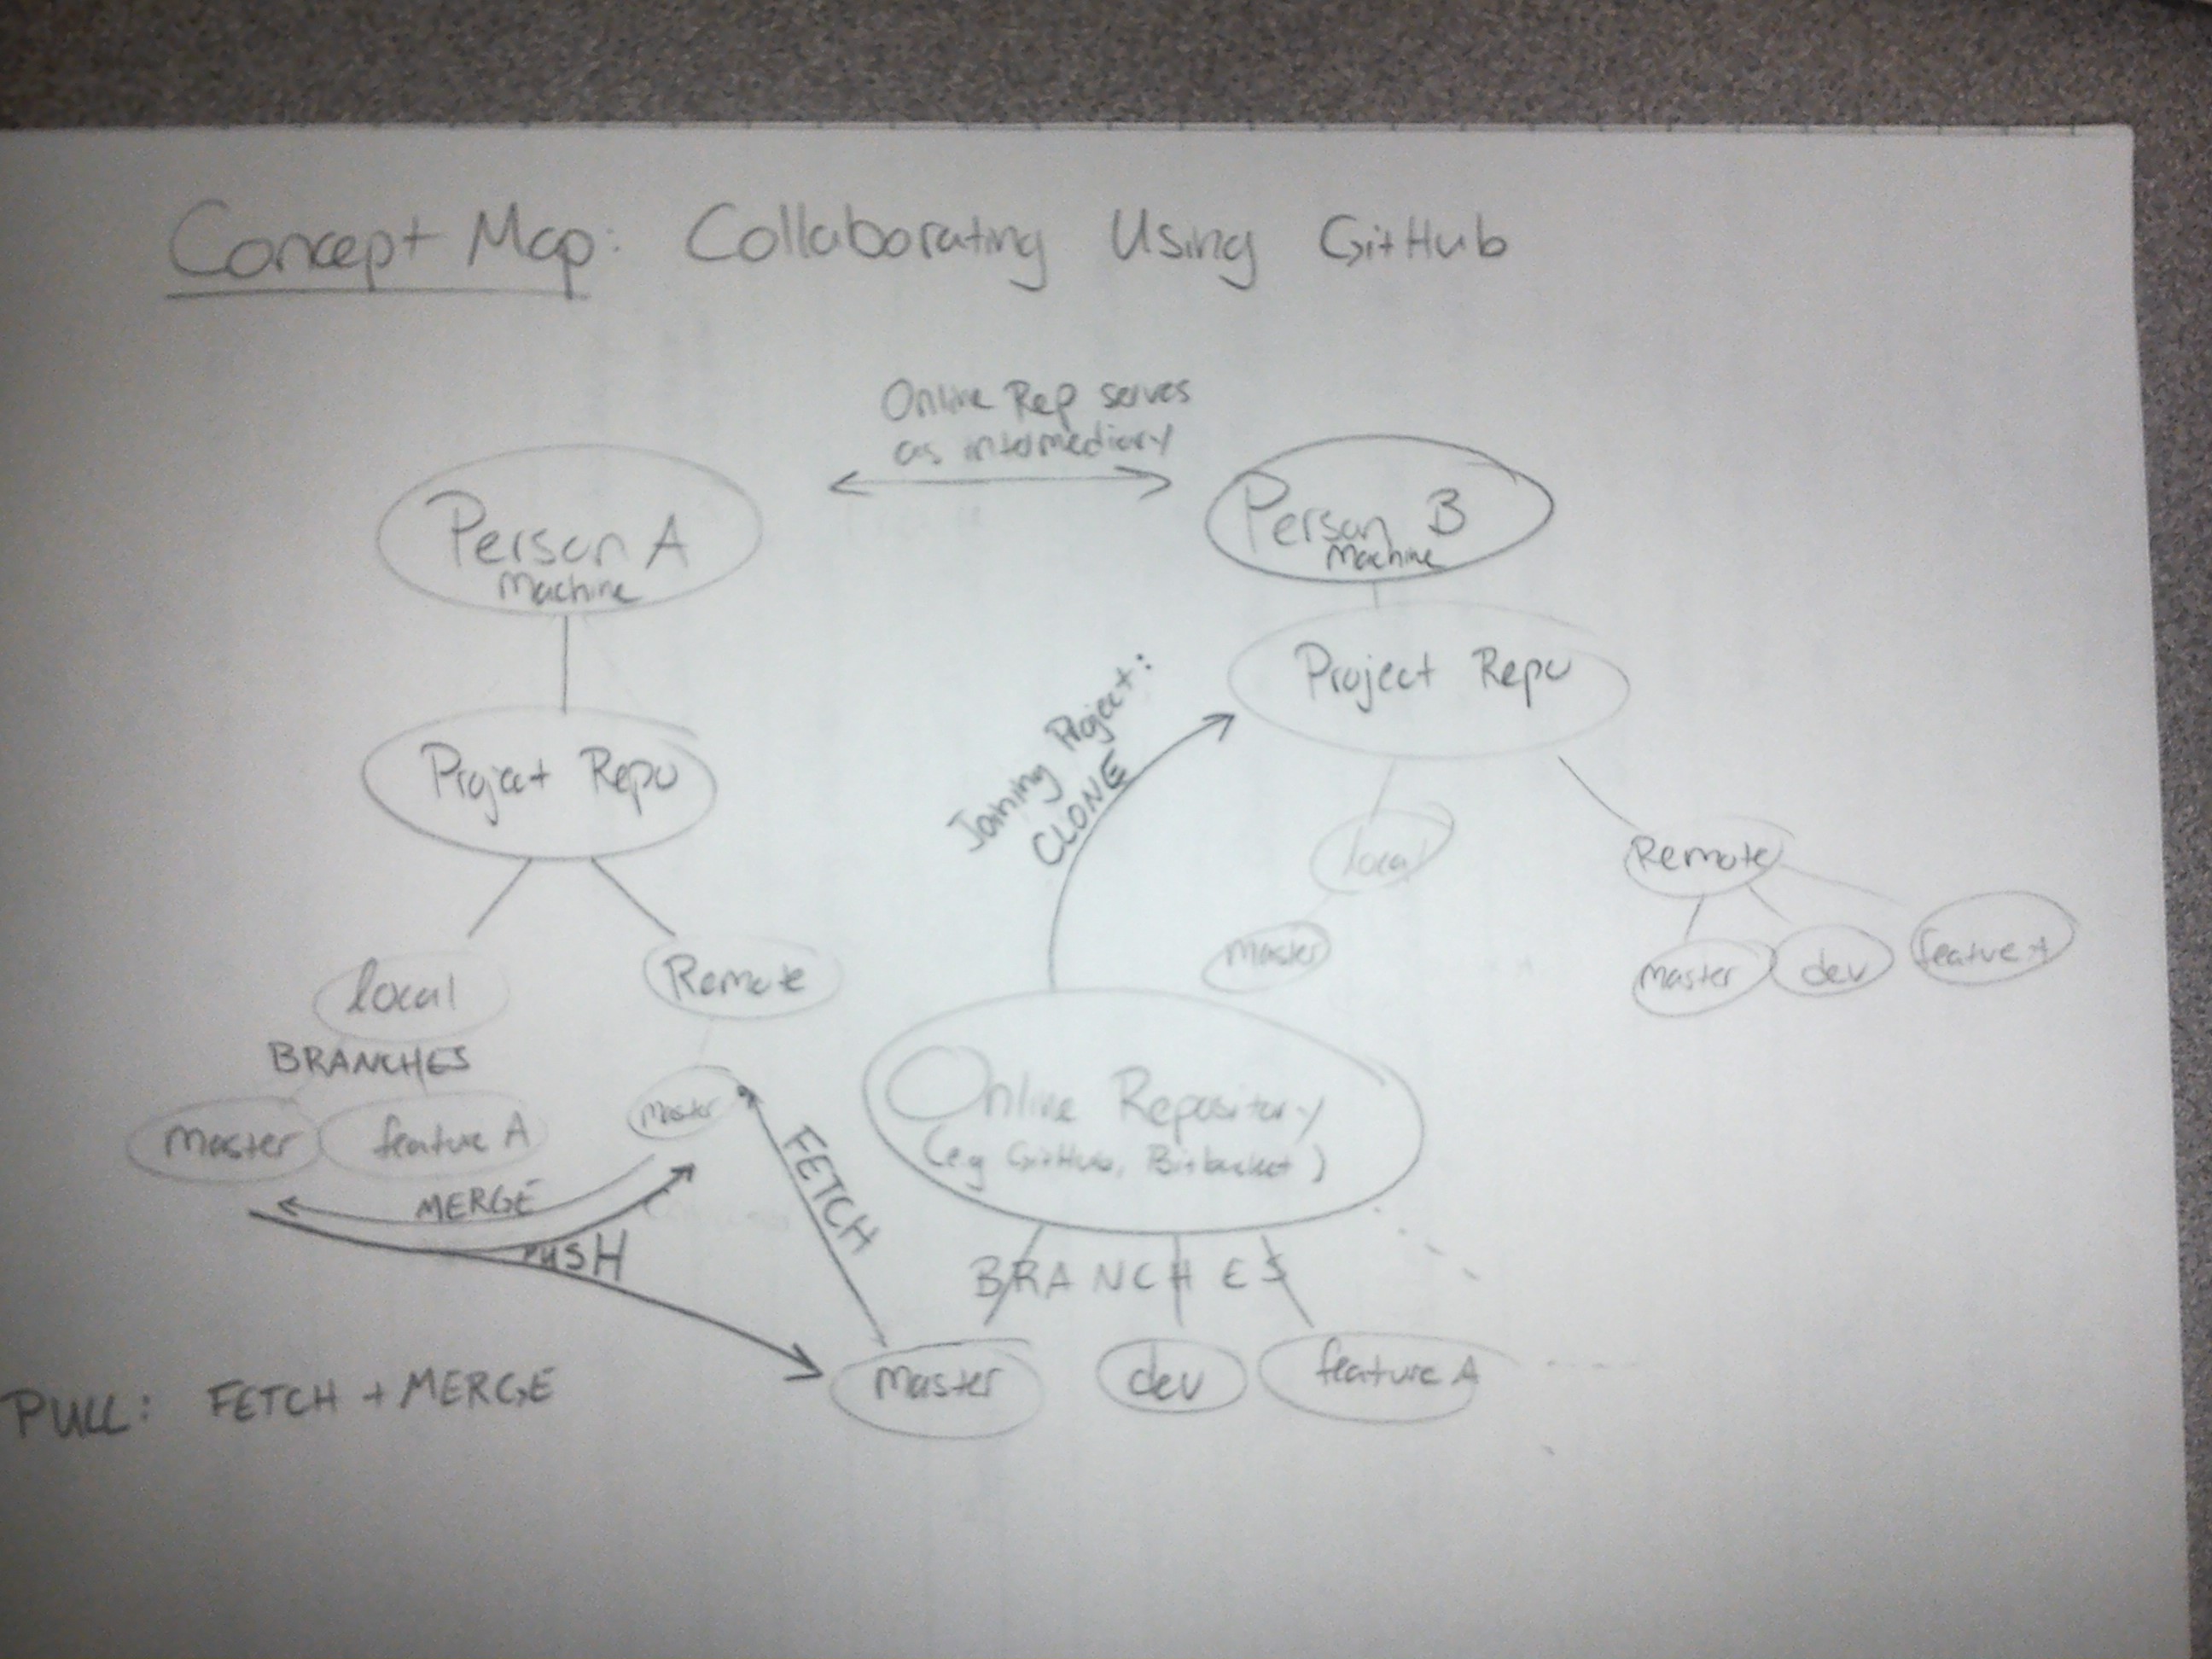 Concept Map: Collaborating Using GitHub
Online Rep serves
as intermediary
Person A
Machine
Person B
Machine
Project Repo
Project Repo
Joining Project:
CLONE
local
Remote
master
master
dev
feature A
local
Remote
BRANCHES
master
feature A
master
MERGE
PUSH
FETCH
Online Repository
(eg GitHub, Bitbucket)
BRANCHES
master
dev
feature A
PULL: FETCH + MERGE